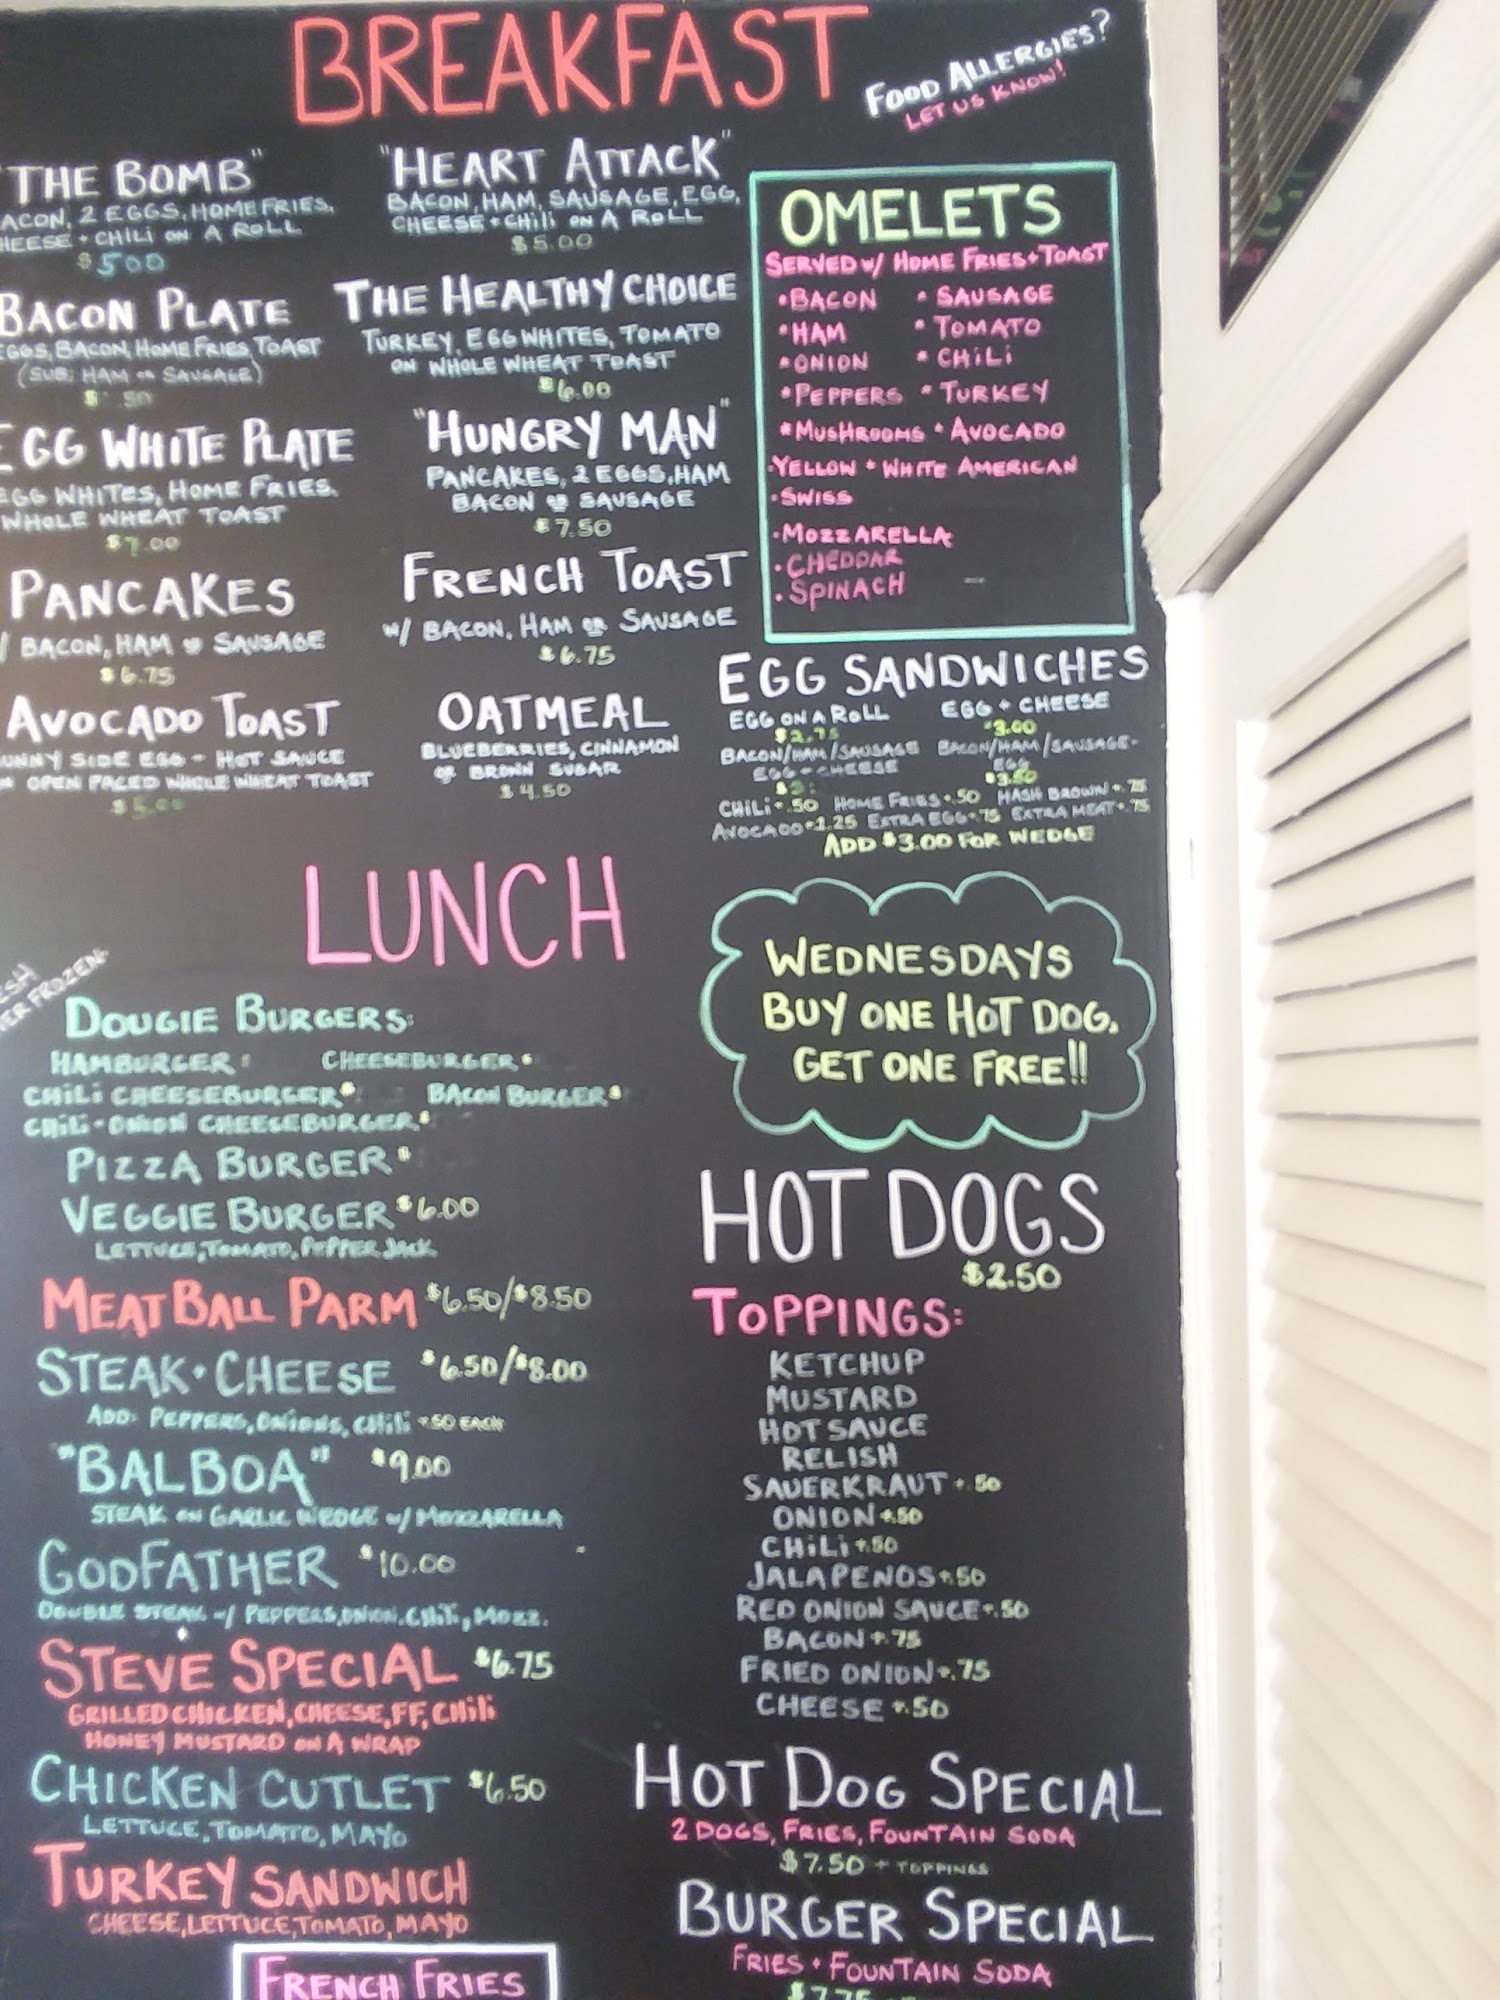 BREAKFAST
FOOD ALLERGIES?
LET US KNOW!
"THE BOMB"
ACON, 2 EGGS, HOME FRIES,
HEESE + CHILI ON A ROLL
$5.00
BACON PLATE
EGGS, BACON, HOME FRIES, TOAST
(SUB: HAM OR SAUSAGE)
EGG WHITE PLATE
EGG WHITES, HOME FRIES.
WHOLE WHEAT TOAST
$7.00
PANCAKES
W/ BACON, HAM OR SAUSAGE
$6.75
AVOCADO TOAST
UNNY SIDE EGG - HOT SAUCE
N OPEN FACED WHOLE WHEAT TOAST
$5.00
"HEART ATTACK"
BACON, HAM, SAUSAGE, EGG,
CHEESE + CHILI ON A ROLL
$5.00
THE HEALTHY CHOICE
TURKEY, EGG WHITES, TOMATO
ON WHOLE WHEAT TOAST
$6.00
"HUNGRY MAN"
PANCAKES, 2 EGGS, HAM
BACON OR SAUSAGE
$7.50
FRENCH TOAST
W/ BACON, HAM OR SAUSAGE
$6.75
OATMEAL
BLUEBERRIES, CINNAMON
OR BROWN SUGAR
$4.50
OMELETS
SERVED W/ HOME FRIES + TOAST
• BACON • SAUSAGE
• HAM • TOMATO
• ONION • CHILI
• PEPPERS • TURKEY
• MUSHROOMS • AVOCADO
• YELLOW + WHITE AMERICAN
• SWISS
• MOZZARELLA
• CHEDDAR
• SPINACH
EGG SANDWICHES
EGG ON A ROLL EGG + CHEESE
$2.75 $3.00
BACON/HAM/SAUSAGE BACON/HAM/SAUSAGE-
EGG + CHEESE EGG
$3.50
CHILI + .50 HOME FRIES + .50 HASH BROWN + .75
AVOCADO + 1.25 EXTRA EGG + .75 EXTRA MEAT + .75
ADD $3.00 FOR WEDGE
LUNCH
ESH
ER FROZEN-
DOUGIE BURGERS:
HAMBURGER: CHEESEBURGER
CHILI CHEESEBURGER BACON BURGER
CHILI-ONION CHEESEBURGER
PIZZA BURGER
VEGGIE BURGER $6.00
LETTUCE, TOMATO, PEPPER JACK
MEATBALL PARM $6.50/$8.50
STEAK • CHEESE $6.50/$8.00
ADD: PEPPERS, ONIONS, CHILI +.50 EACH
"BALBOA" $9.00
STEAK ON GARLIC WEDGE W/ MOZZARELLA
GODFATHER $10.00
DOUBLE STEAK W/ PEPPERS, ONION, CHILI, MOZZ.
STEVE SPECIAL $6.75
GRILLED CHICKEN, CHEESE, FF, CHILI
HONEY MUSTARD ON A WRAP
CHICKEN CUTLET $6.50
LETTUCE, TOMATO, MAYO
TURKEY SANDWICH
CHEESE, LETTUCE, TOMATO, MAYO
FRENCH FRIES
WEDNESDAYS
BUY ONE HOT DOG.
GET ONE FREE!!
HOT DOGS
$2.50
TOPPINGS:
KETCHUP
MUSTARD
HOT SAUCE
RELISH
SAUERKRAUT + .50
ONION + .50
CHILI + .50
JALAPENOS + .50
RED ONION SAUCE + .50
BACON + .75
FRIED ONION + .75
CHEESE + .50
HOT DOG SPECIAL
2 DOGS, FRIES, FOUNTAIN SODA
$7.50 + TOPPINGS
BURGER SPECIAL
FRIES + FOUNTAIN SODA
$7.75